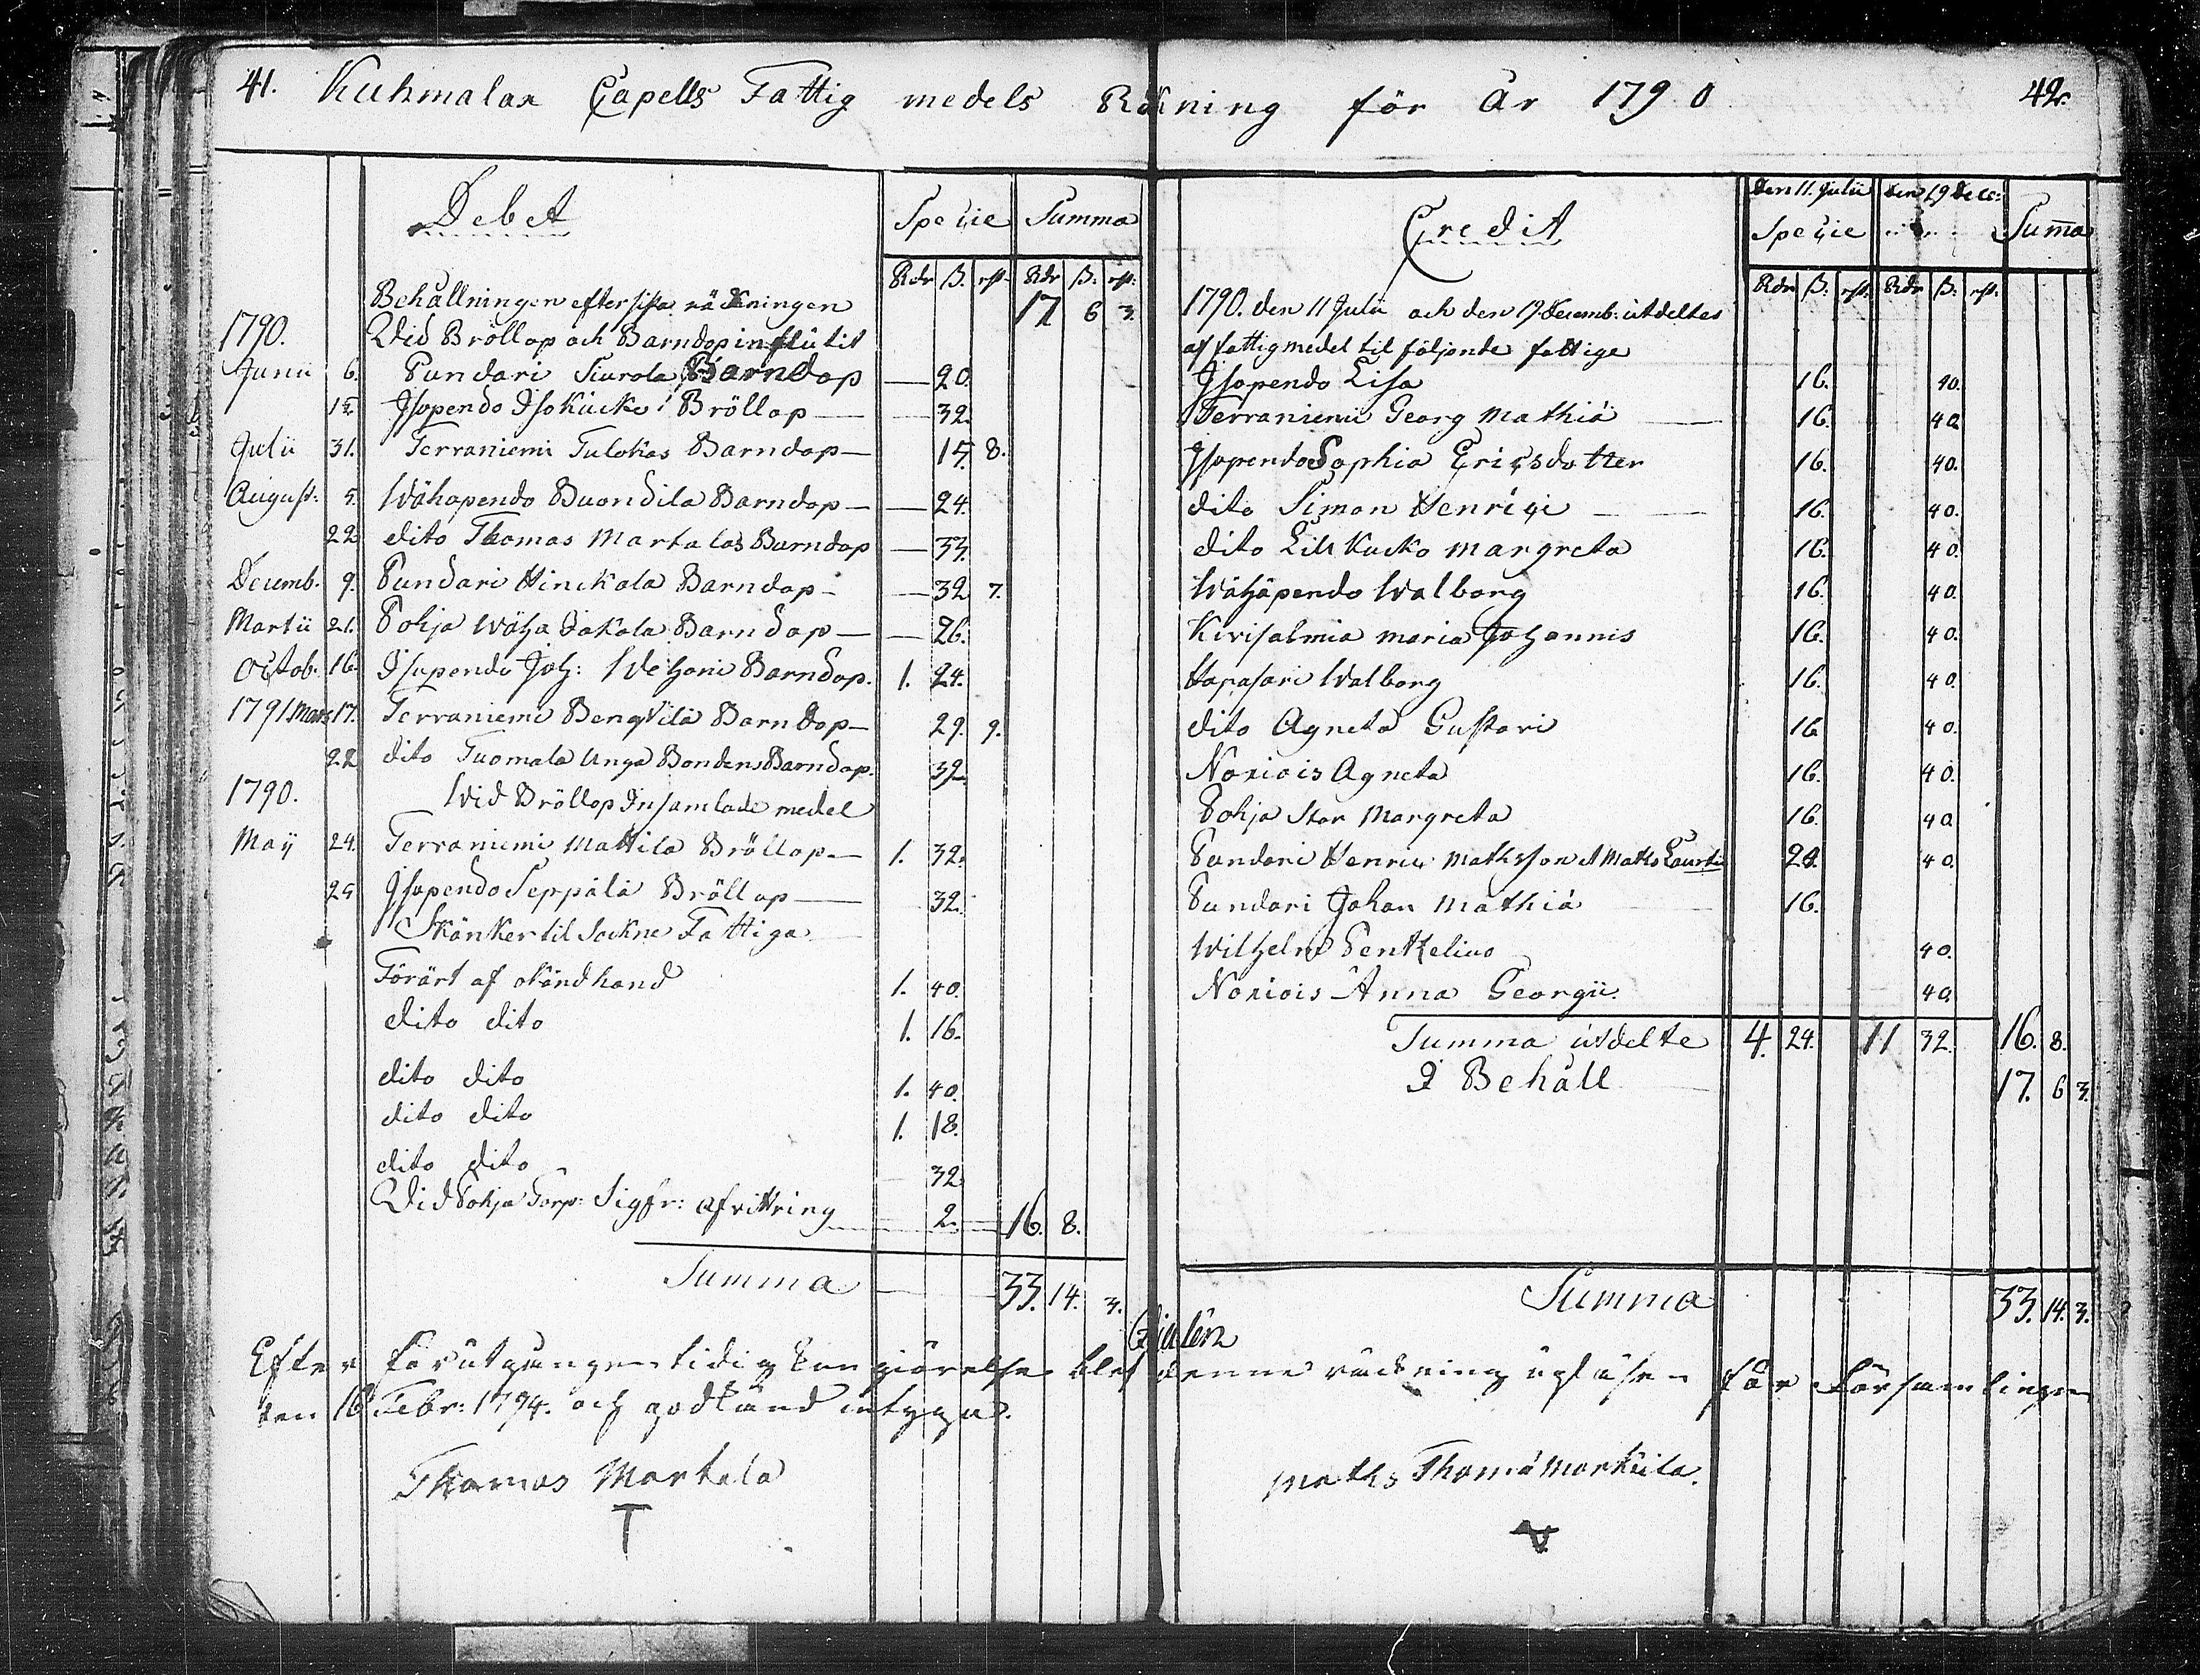 41. Kuhmalax Capells Fattig medels Räkning för År 1790 42.
Debet Specie Summa
Rdr ß. rst. Rdr ß. rst.
Behållningen efter sista räckningen 17 6 3.
1790. Wid Bröllop och Barndop influtit
Junii 6. Pundari Siurola Barndop — 20.
12 Isopendo Isokucko Bröllop — 32.
Julii 31. Terraniemi Tulokas Barndop — 15. 8.
August: 5. Wähapendo Buondila Barndop — 24.
22 dito Thomas Martalas Barndop — 33.
Decemb. 9. Pundari Hinckala Barndop — 32 7.
Martii 21. Pohja Wäha Jakola Barndop — 26.
Octob. 16. Isopendo Joh: Wehani Barndop. 1. 24.
1791 Mars 17. Terraniemi Bengtilä Barndop — 29. 9.
22 dito Tuomala Unga Bondens Barndop. 32
1790. Wid Bröllop Insamlade medel
Maij 24. Terraniemi Mattila Bröllop — 1. 32.
29 Isopendo Seppälä Bröllop — 32.
Skänker til Sockne Fattiga
Förärt af okänd hand 1. 40.
dito dito 1. 16.
dito dito 1. 40.
dito dito 1. 18.
dito dito 32
Wid Pohja Torp: Sigfr: afvittring 2. 16. 8.
Summa 33. 14. 3.
Credit den 11. Julii den 19 Dece:
Specie Summa
Rdr ß. rst. Rdr ß. rst.
1790. den 11 Julii och den 19. Decemb: utdeltes
af fattigmedel til följande fattige
Isopendo Lisa 16. 40.
Terraniemi Georg Mathiä 16. 40
Isopendo Sophia Ericsdotter 16. 40.
dito Simon Henrici 16. 40.
dito Lill Kucko Margreta 16. 40.
Wähäpendo Walborg 16. 40.
Kirisalmia Maria Johannis 16. 40.
Hapasari Walborg 16. 40.
dito Agneta Gustavi 16 40.
Noxiois Agneta 16. 40.
Pohja Stor Margreta 16. 40
Pundari Henric Mathsson et Maths Laurtii 24. 40.
Pundari Johan Mathiä 16.
Wilhelm Penkelius 40.
Noxiois Anna Georgii. 40
Summa utdelte 4. 24. 11 32. 16. 8.
I Behåll 17. 6 3.
Summa 33. 14. 3.
Efter förutgången tidig kungiörelse blef denne räckning upläsen för Församlingen
den 16 Febr: 1794. och godkänd intyga.
Thomas Martala Maths Thomä Markuila.
T